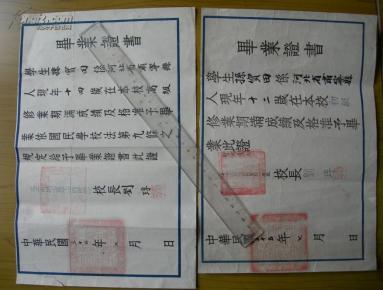 畢業證書
學生孫賓田係河北省肅寧縣
人現年十四歲在本校高級
修業期滿成績及格准予畢
業依國民學校法第九條之
規定給予畢業證書此證
校長劉
中華民國 年 月 日
畢業證書
學生孫賓田係河北省肅寧縣
人現年十二歲在本校初級
修業期滿成績及格准予畢
業此證
校長劉
中華民國 年 月 日